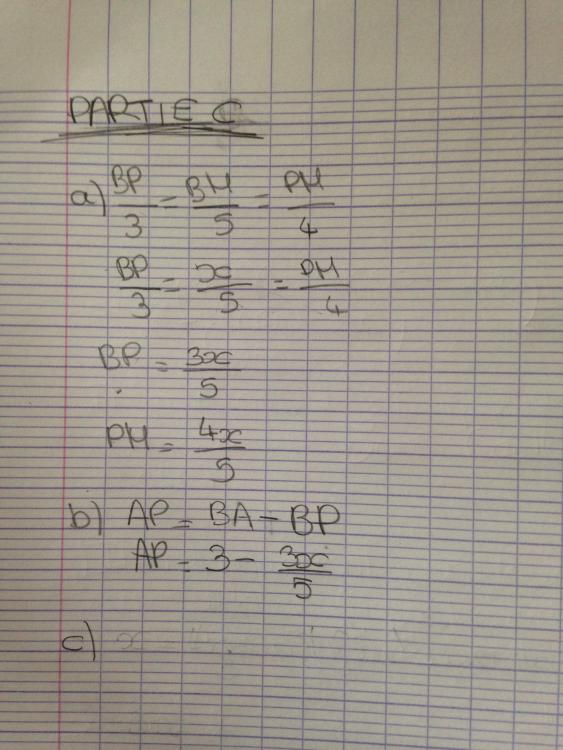 PARTIE C
a) BP/3 = BH/5 = PH/4
BP/3 = x/5 = PH/4
BP = 3x/5
PH = 4x/5
b) AP = BA - BP
AP = 3 - 3x/5
c)